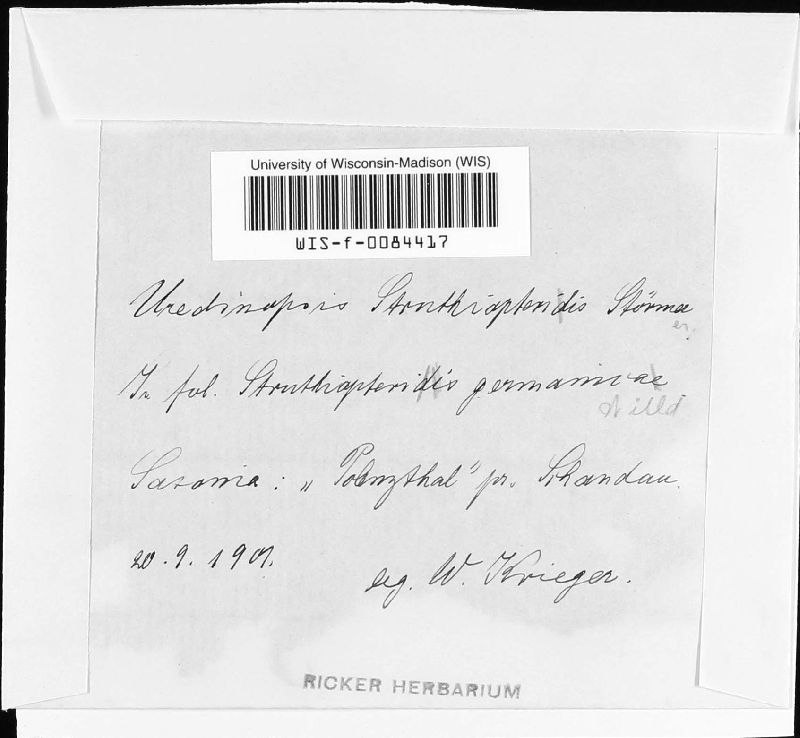 University of Wisconsin-Madison (WIS)
WIS-f-0084417
Uredinopsis Struthiopteridis Störmer
er.
In fol. Struthiopteridis germanicae
Willd
Saxonia: „Polenzthal" pr. Schandau.
20.9.1901.
leg. W. Krieger.
RICKER HERBARIUM